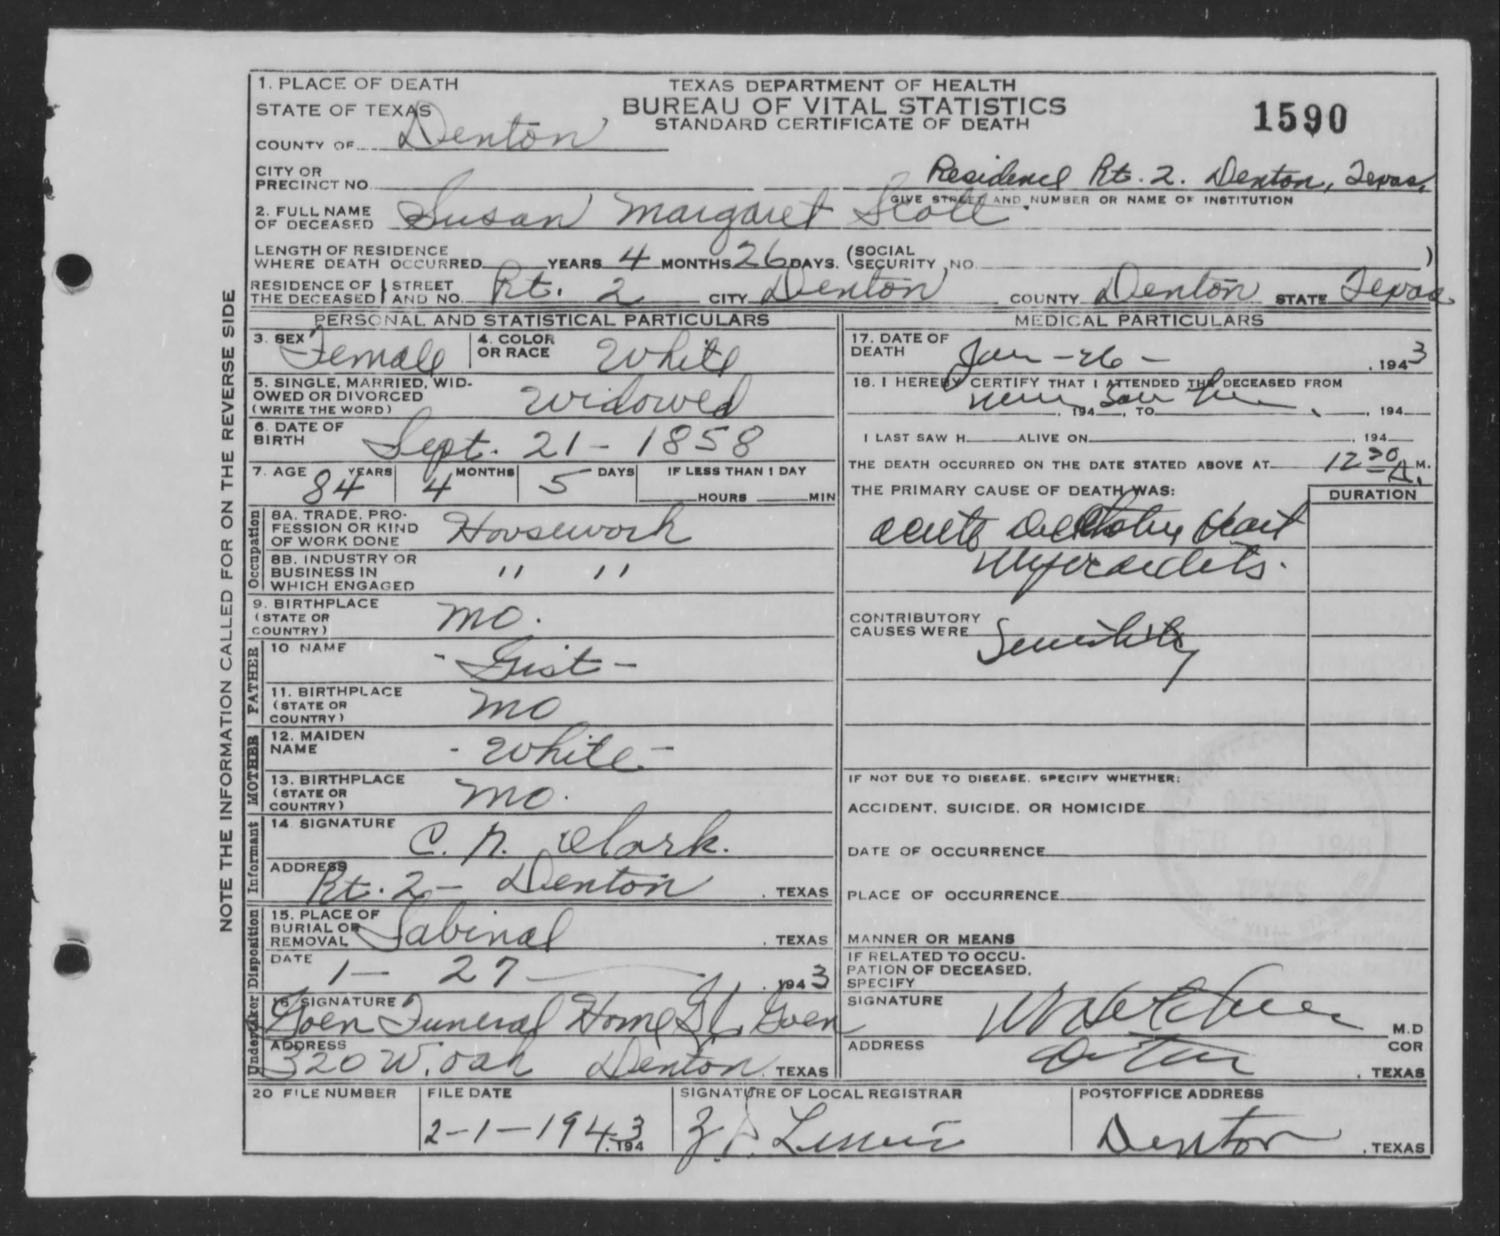 1. PLACE OF DEATH
STATE OF TEXAS
COUNTY OF Denton
TEXAS DEPARTMENT OF HEALTH
BUREAU OF VITAL STATISTICS
STANDARD CERTIFICATE OF DEATH
1590
CITY OR
PRECINCT NO.
Residence Rt. 2. Denton, Texas,
GIVE STREET AND NUMBER OR NAME OF INSTITUTION
2. FULL NAME
OF DECEASED Susan Margaret Scott.
LENGTH OF RESIDENCE
WHERE DEATH OCCURRED YEARS 4 MONTHS 26 DAYS. (SOCIAL
SECURITY NO. )
RESIDENCE OF STREET
THE DECEASED AND NO. Rt. 2 CITY Denton COUNTY Denton STATE Texas
PERSONAL AND STATISTICAL PARTICULARS
3. SEX Female
4. COLOR
OR RACE White
5. SINGLE, MARRIED, WID-
OWED OR DIVORCED
(WRITE THE WORD) Widowed
6. DATE OF
BIRTH Sept. 21 - 1858
7. AGE 84 YEARS 4 MONTHS 5 DAYS IF LESS THAN 1 DAY
HOURS MIN
Occupation
8A. TRADE, PRO-
FESSION OR KIND
OF WORK DONE Housework
8B. INDUSTRY OR
BUSINESS IN
WHICH ENGAGED " "
9. BIRTHPLACE
(STATE OR
COUNTRY) Mo.
FATHER
10 NAME - Gist -
11. BIRTHPLACE
(STATE OR
COUNTRY) Mo
MOTHER
12. MAIDEN
NAME - White -
13. BIRTHPLACE
(STATE OR
COUNTRY) Mo.
Informant
14 SIGNATURE C. N. Clark.
ADDRESS Rt. 2 - Denton , TEXAS
Disposition
15. PLACE OF
BURIAL OR
REMOVAL Sabinal , TEXAS
DATE 1 - 27 - , 1943
Undertaker
16 SIGNATURE Goen Funeral Home Goen
ADDRESS 320 W. Oak Denton, TEXAS
MEDICAL PARTICULARS
17. DATE OF
DEATH Jan - 26 - , 1943
18. I HEREBY CERTIFY THAT I ATTENDED THE DECEASED FROM
never saw her , 194 , TO , 194
I LAST SAW H ALIVE ON , 194
THE DEATH OCCURRED ON THE DATE STATED ABOVE AT 12 30 A. M.
THE PRIMARY CAUSE OF DEATH WAS:
DURATION
acute Heart
Myocarditis.
CONTRIBUTORY
CAUSES WERE Senility
IF NOT DUE TO DISEASE, SPECIFY WHETHER:
ACCIDENT, SUICIDE, OR HOMICIDE
DATE OF OCCURRENCE
PLACE OF OCCURRENCE
MANNER OR MEANS
IF RELATED TO OCCU-
PATION OF DECEASED,
SPECIFY
SIGNATURE M.D
COR
ADDRESS Denton , TEXAS
20 FILE NUMBER
FILE DATE
2-1-1943
194
SIGNATURE OF LOCAL REGISTRAR
POSTOFFICE ADDRESS
Denton , TEXAS
NOTE THE INFORMATION CALLED FOR ON THE REVERSE SIDE